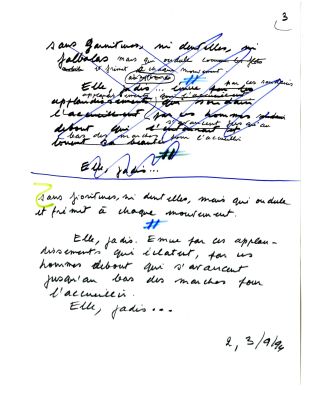 3
sans garnitures, ni dentelles, ni
falbalas mais qui ondule comme les flots
et frémit à chaque mouvement
Elle, jadis... émue par ces souverains
applaudissements qui
applaudissements qui
l'accueillent, par ces hommes
debout qui s'avancent jusqu'au
bas des marches pour l'accueillir
Elle, jadis...
sans fioritures, ni dentelles, mais qui ondule
et frémit à chaque mouvement.
Elle, jadis. Emue par ces applau-
dissements qui éclatent, par ces
hommes debout qui s'avancent
jusqu'au bas des marches pour
l'accueillir.
Elle, jadis...
2, 3/9/94